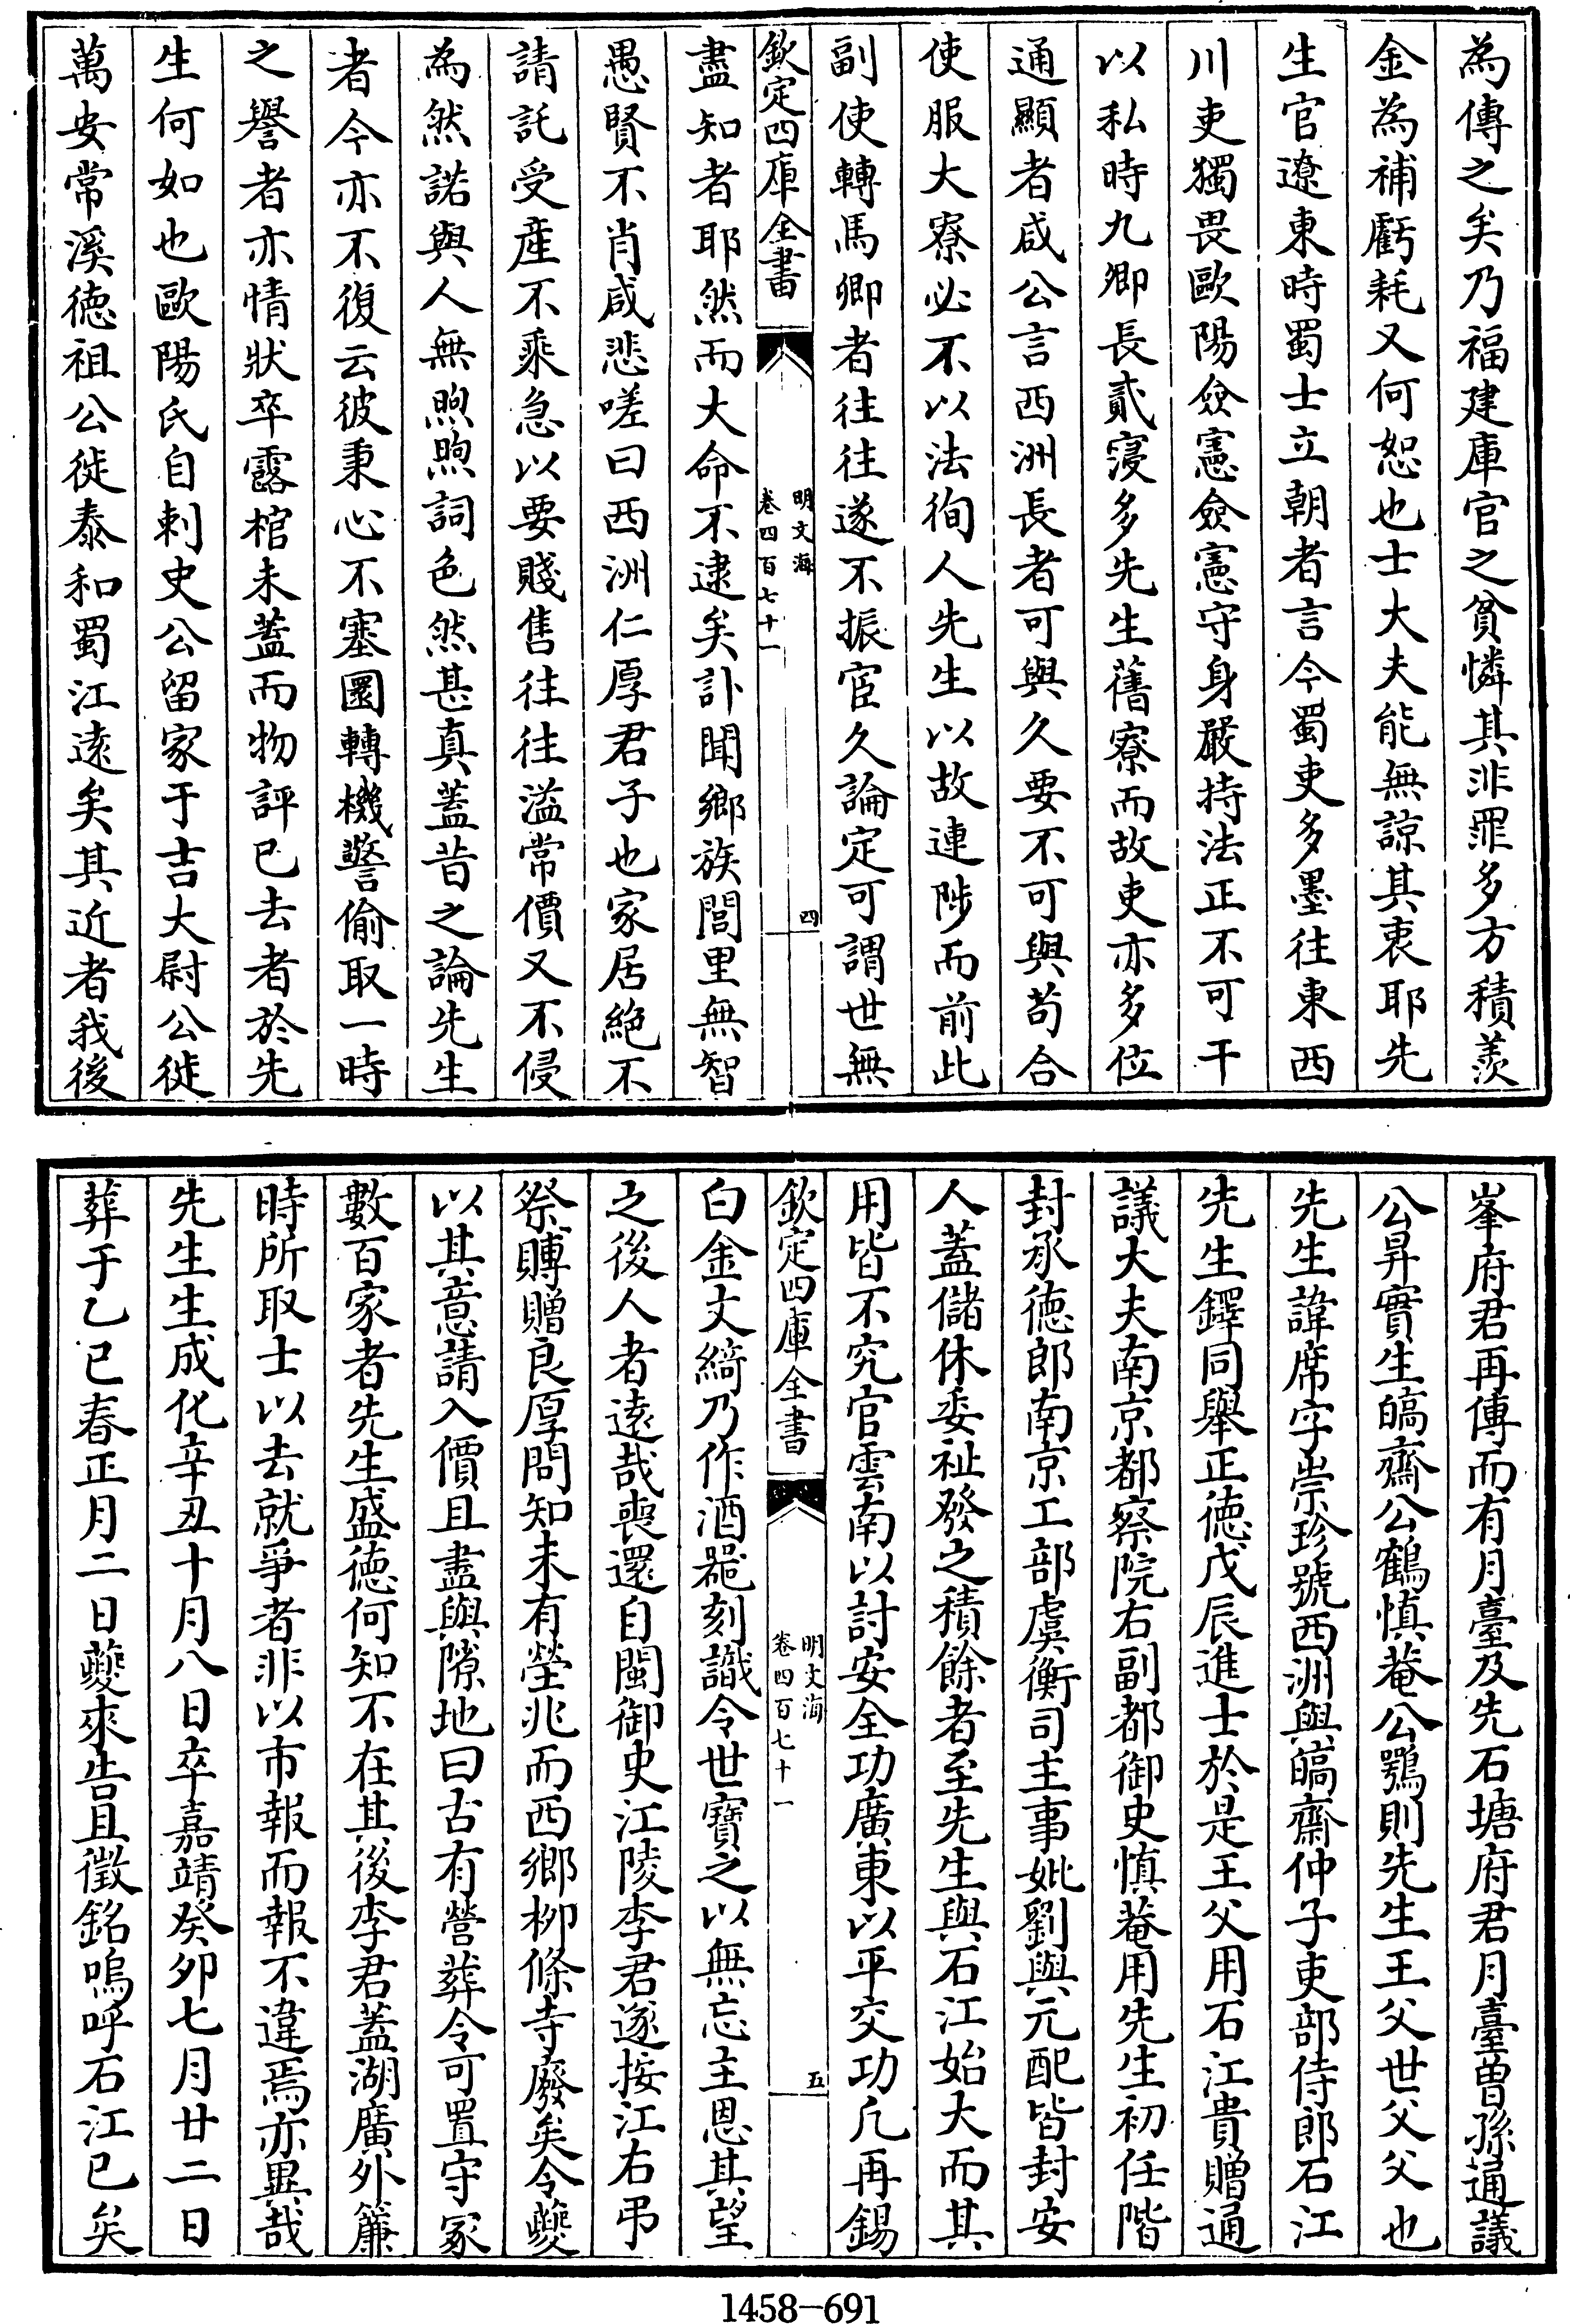 為傳之矣乃福建庫官之貧憐其非罪多方積羨
金為補虧耗又何恕也士大夫能無諒其衷耶先
生官遼東時蜀士立朝者言今蜀吏多墨往東西
川吏獨畏歐陽僉憲僉憲守身嚴持法正不可干
以私時九卿長貳寖多先生舊寮而故吏亦多位
通顯者咸公言西洲長者可與久要不可與苟合
使服大寮必不以法徇人先生以故連陟而前此
副使轉馬卿者往往遂不振宦久論定可謂世無
欽定四庫全書
明文海
卷四百七十一
四
盡知者耶然而大命不逮矣訃聞鄉族閭里無智
愚賢不肖咸悲嗟曰西洲仁厚君子也家居絶不
請託受産不乘急以要賤售往往溢常價又不侵
為然諾與人無煦煦詞色然甚真蓋昔之論先生
者今亦不復云彼秉心不塞圜轉機警偷取一時
之譽者亦情狀卒露棺未蓋而物評已去者於先
生何如也歐陽氏自刺史公留家于吉大尉公徙
萬安常溪徳祖公徙泰和蜀江逺矣其近者我後
峯府君再傳而有月臺及先石塘府君月臺曽孫通議
公昇實生皜齋公鶴慎菴公鶚則先生王父世父父也
先生諱席字崇珍號西洲與皜齋仲子吏部侍郎石江
先生鐸同舉正徳戊辰進士於是王父用石江貴贈通
議大夫南京都察院右副都御史慎菴用先生初任階
封承徳郎南京工部虞衡司主事妣劉與元配皆封安
人蓋儲休委祉發之積餘者至先生與石江始大而其
用皆不究官雲南以討安全功廣東以平交功凡再錫
欽定四庫全書
明文海
卷四百七十一
五
白金文綺乃作酒器刻識令世寶之以無忘主恩其望
之後人者逺哉喪還自閩御史江陵李君遂按江右弔
祭賻贈良厚問知未有塋兆而西鄉柳條寺廢矣令夔
以其意請入價且盡與隙地曰古有營葬令可置守冢
數百家者先生盛徳何知不在其後李君蓋湖廣外簾
時所取士以去就爭者非以市報而報不違焉亦異哉
先生生成化辛丑十月八日卒嘉靖癸卯七月廿二日
葬于乙巳春正月二日夔來告且徵銘嗚呼石江已矣
1458-691